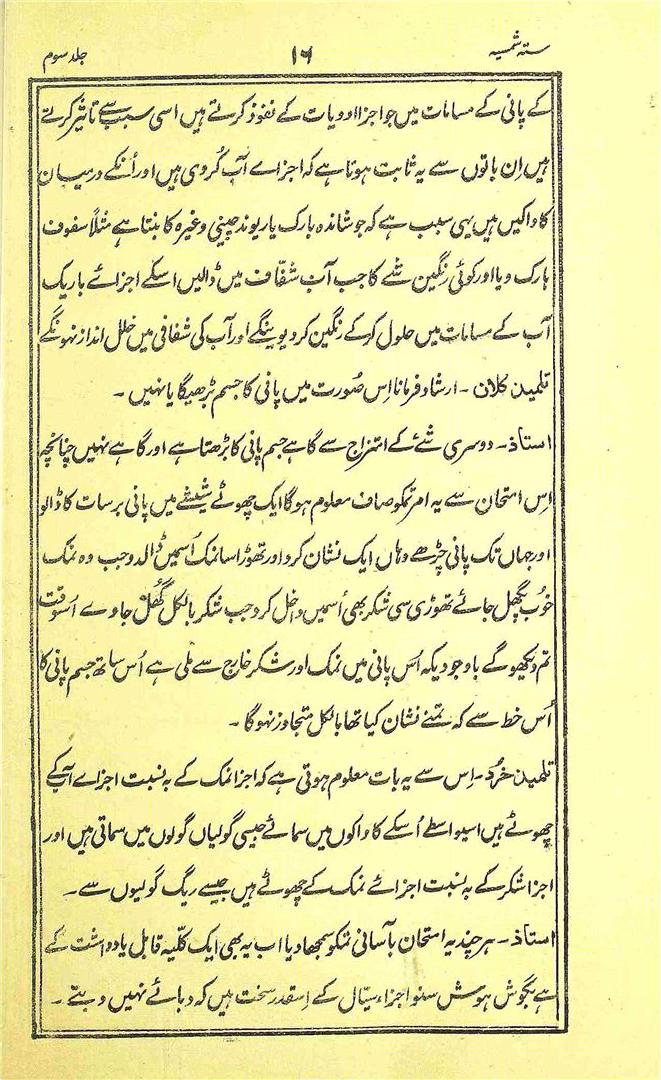 ستہ شمسیہ ۱۶ جلد سوم
کے پانی کے مسامات میں جو اجزا ادویات کے نفوذ کرتے ہیں اسی سبب سے تاثیر کرتے
ہیں اِن باتوں سے یہ ثابت ہوتا ہے کہ اجزاے آب کُروی ہیں اور اُنکے درمیان
کاواکیں ہیں یہی سبب ہے کہ جوشاندہ بارک یا ریوند چینی وغیرہ کا بنتا ہے مثلًا سفوف
بارک و یا اور کوئی رنگین شے کا جب آب شفّاف میں ڈالیں اسکے اجزائے باریک
آب کے مسامات میں حلول کرکے رنگین کر دیوینگے اور آب کی شفافی میں خلل انداز نہونگے
تلمیذ کلان ۔ ارشاد فرمانا اِس صُورت میں پانی کا جسم بڑھیگا یا نہیں ۔
استاذ ۔ دوسری شئے کے امتزاج سے گاہے جسم پانی کا بڑھتا ہے اور گاہے نہیں چنانچہ
اِس امتحان سے یہ امر تمکو صاف معلوم ہوگا ایک چھوٹے شیشے میں پانی برسات کا ڈالو
اور جہاں تک پانی چڑھے وہاں ایک نشان کردو اور تھوڑا سا نمک اُسمیں ڈالدو جب وہ نمک
خُوب پگھل جائے تھوڑی سی شکر بھی اُسمیں داخل کرو جب شکر بالکل گھُل جاوے اُسوقت
تم دیکھوگے باوجودیکہ اُس پانی میں نمک اور شکر خارج سے ملی ہے اُس ساتھ جسم پانی کا
اُس خط سے کہ تمنے نشان کیا تھا بالکل متجاوز نہوگا ۔
تلمیذ خرُد ۔ اِس سے یہ بات معلوم ہوتی ہے کہ اجزا نمک کے بہ نسبت اجزاے آب کے
چھوٹے ہیں اسیواسطے اُسکے کاواکوں میں سمائے جیسی گولیاں گولوں میں سماتی ہیں اور
اجزا شکر کے بہ نسبت اجزائے نمک کے چھوٹے ہیں جیسے ریگ گولیوں سے ۔
استاذ ۔ ہر چند یہ امتحان بآسانی تمکو سمجھا دیا اب یہ بھی ایک کلّیہ قابل یادداشت کے
ہے بگوش ہوش سنو اجزاء سیّال کے اِسقدر سخت ہیں کہ دبائے نہیں دبتے ۔